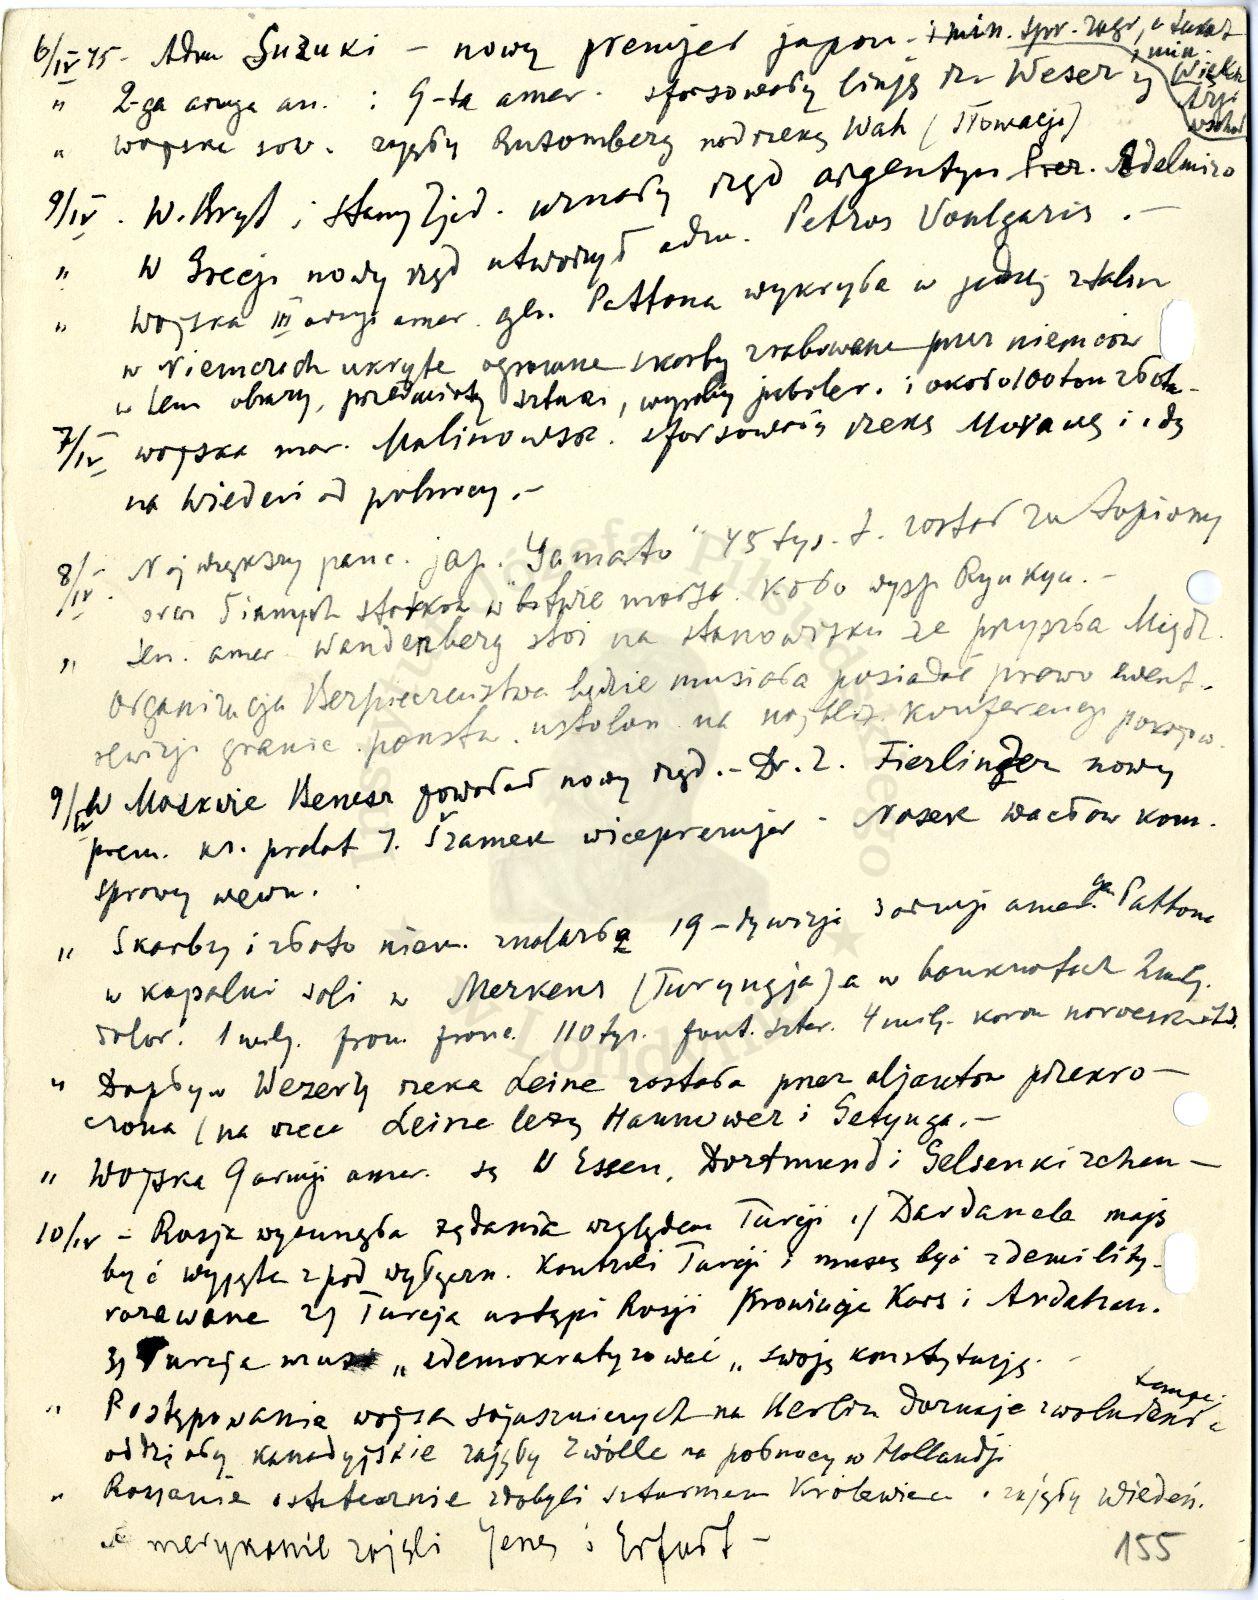 6/IV 45 - Adm Suzuki - nowy premjer japon. i min. spr. zagr.,
min. Więk. Azji wschod.
" 2-ga armja an. i 9-ta amer. sforsowały linję rz. Wezery
" wojska sow. zajęły Rutomberg nad rzeką Wah (Słowacja)
9/IV. W. Bryt i Stany Zjed. uznały rząd argentyn. Gier. Adelmiro
" W Grecji nowy rząd utworzył adm. Petros Voulgaris. -
" Wojska III armji amer. gen. Pattona wykryła w jednej z kaln
w Niemczech ukryte ogromne skarby zrabowane przez niemców
w tem obrazy, przedmioty sztuki, wyroby jubiler. i około 100 ton złota -
7/IV wojska mar. Malinowsk. sforsowały rzekę Morawę i idą
na Wiedeń od północy. -
8/IV. Największy panc. jap. "Yamato" 45 tys. t. został zatopiony
oraz 5 innych statków w bitwie morsk. koło wysp Ryukyu. -
" Sen. amer. Wandenberg stoi na stanowisku że przyszła Międz.
Organizacja Bezpieczeństwa będzie musiała posiadać prawo ewent.
rewizji granic państw ustalon. na najbliż. konferencji pokojow.
9/IV W Moskwie Benesz powołał nowy rząd. - Dr. Z. Fierlinger nowy
prem. ks. prałat J. Szramek wicepremjer - Nosek Wacław kom.
sprawy wewn.
" Skarby i złoto niem. znalazła 19-dywizja 3 armji amer. gen. Pattona
w kopalni soli w Merkers (Turyngja) a w banknotach 2 milj.
dolar. 1 milj. fran. franc. 110 tys. funt. szter. 4 milj. koron norweskich itd.
" Dopływ Wezery rzeka Leine została przez aljantów przekro-
czona (na rzece Leine leży Hannower i Getynga. -
" Wojska 9 armji amer. są w Essen, Dortmund i Gelsenkirchen -
10/IV - Rosja wysunęła żądania względem Turcji 1) Dardanele mają
być wyjęte z pod wyłączn. kontroli Turcji i muszą być zdemility-
ryzowane 2) Turcja ustąpi Rosji prowincje Kars i Ardahan.
3) Turcja musi „zdemokratyzować„ swoją konstytucję. -
" Postępowanie wojsk sojuszniczych na Berlin doznaje zwolnienia tempa.
oddziały kanadyjskie zajęły Zwolle na północy w Hollandji
" Rosjanie ostatecznie zdobyli szturmem Królewiec i zajęły Wiedeń.
Amerykanie zajęli Jenę i Erfurt -
155
Instytut Józefa Piłsudskiego w Londynie